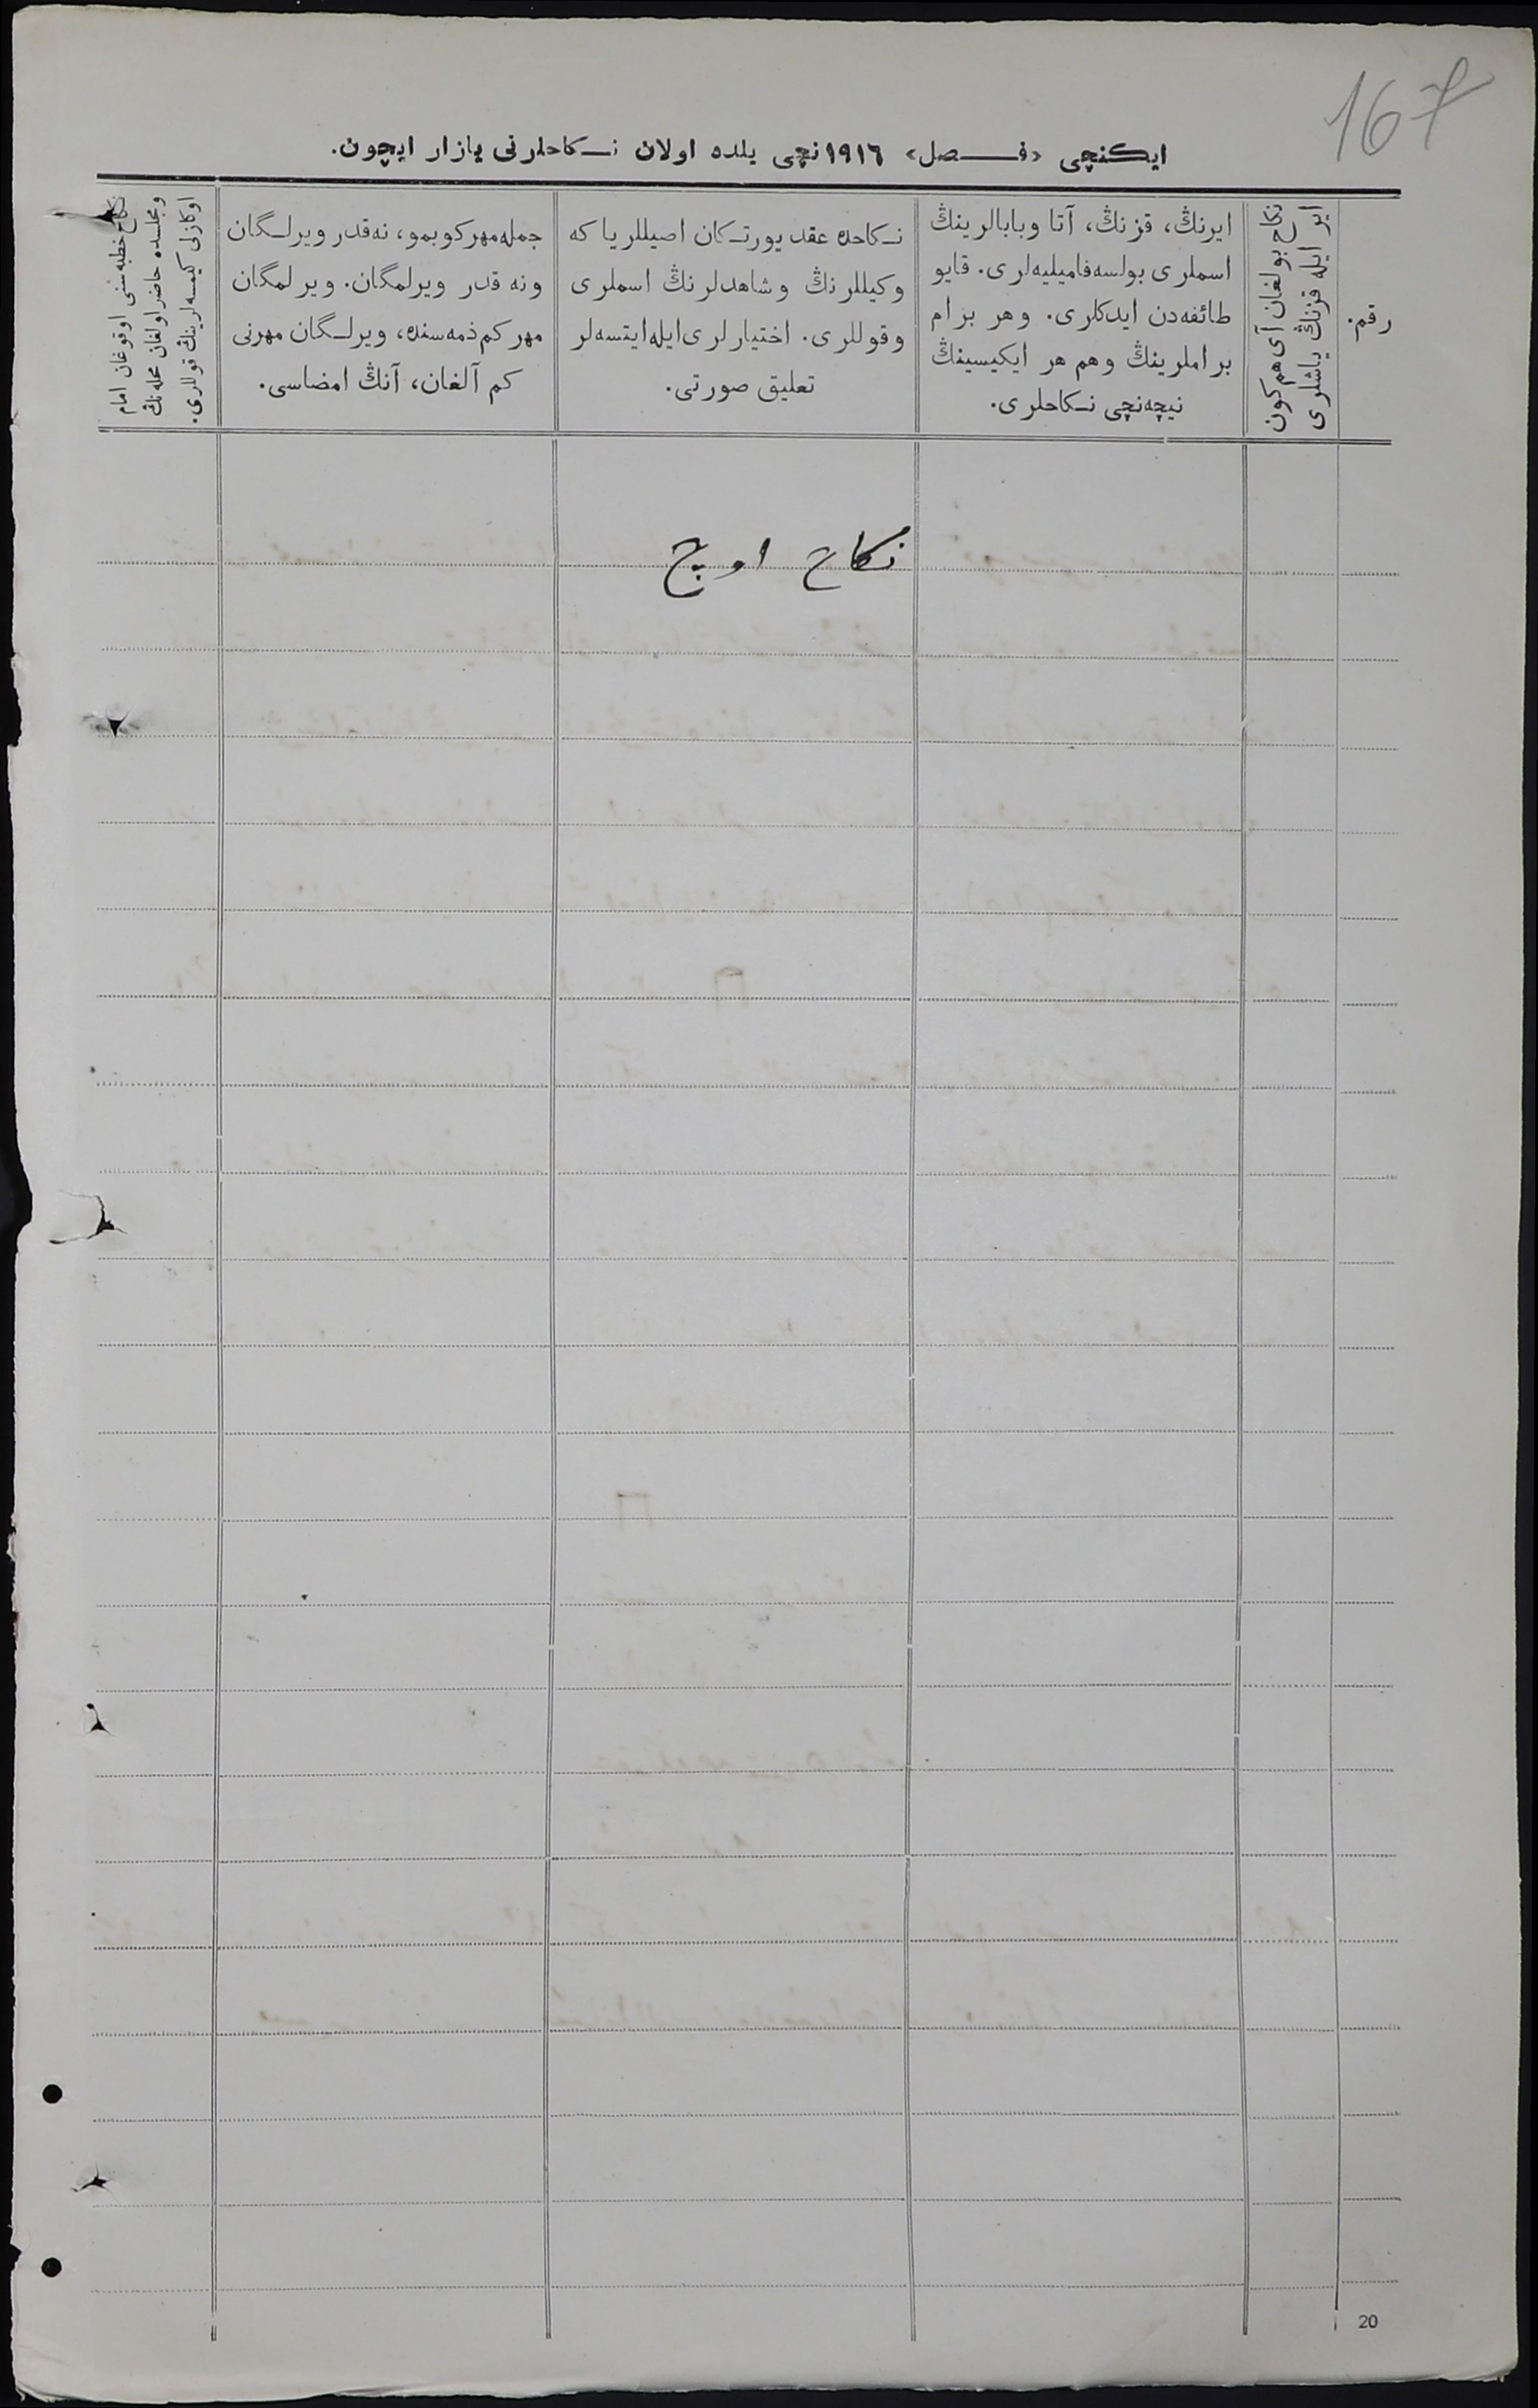 167
ایکنچی «فصل» ١٩١٦نچی یلده اولان نکاحلرنی یازار ایچون.
رقم.
نکاح بولغان آی هم کون
ایر ایله قزنڭ یاشلری
ایرنڭ، قزنڭ، آتا وبابالرینڭ
اسملری بولسه فامیلیه‌لری. قایو
طائفه‌دن ایدکلری. وهر برام
براملرینڭ وهم هر ایکیسینڭ
نیچه‌نچی نکاحلری.
نکاحده عقد یورتکان اصیللر یا که
وکیللرنڭ وشاهدلرنڭ اسملری
وقوللری. اختیارلری ایله ایتسه‌لر
تعلیق صورتی.
جمله مهر کوبمو، نه‌قدر ویرلگان
ونه قدر ویرلمگان. ویرلمگان
مهر کم ذمه‌سنده، ویرلگان مهرنی
کم آلغان، آنڭ امضاسی.
نکاح خطبه‌سنی اوقوغان امام
ومجلسده حاضر اولغان محله‌نڭ
اوکازلی کیمسه‌لرینڭ قوللری.
نکاح اوچ
20